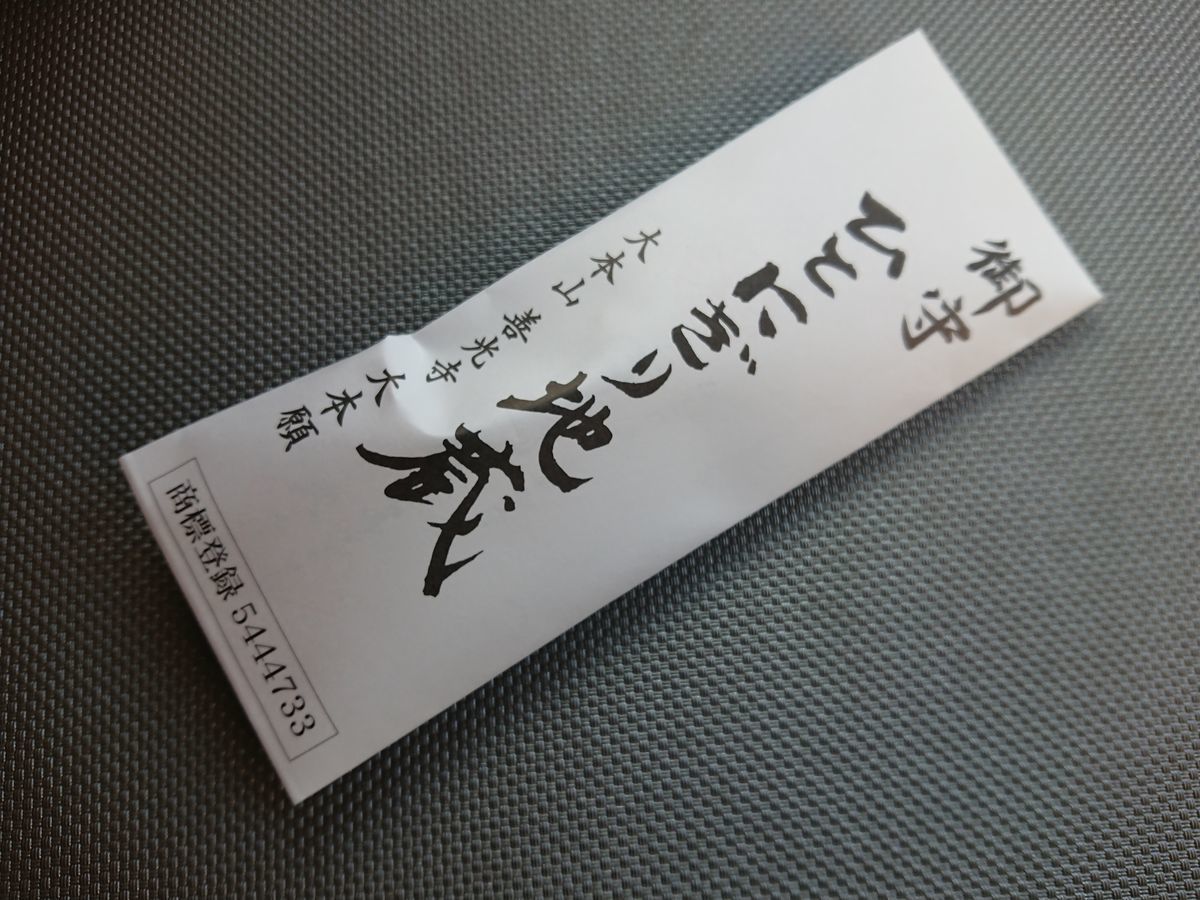 御守
ひとにぎり地蔵
大本山 善光寺 大本願
商標登録 5444733